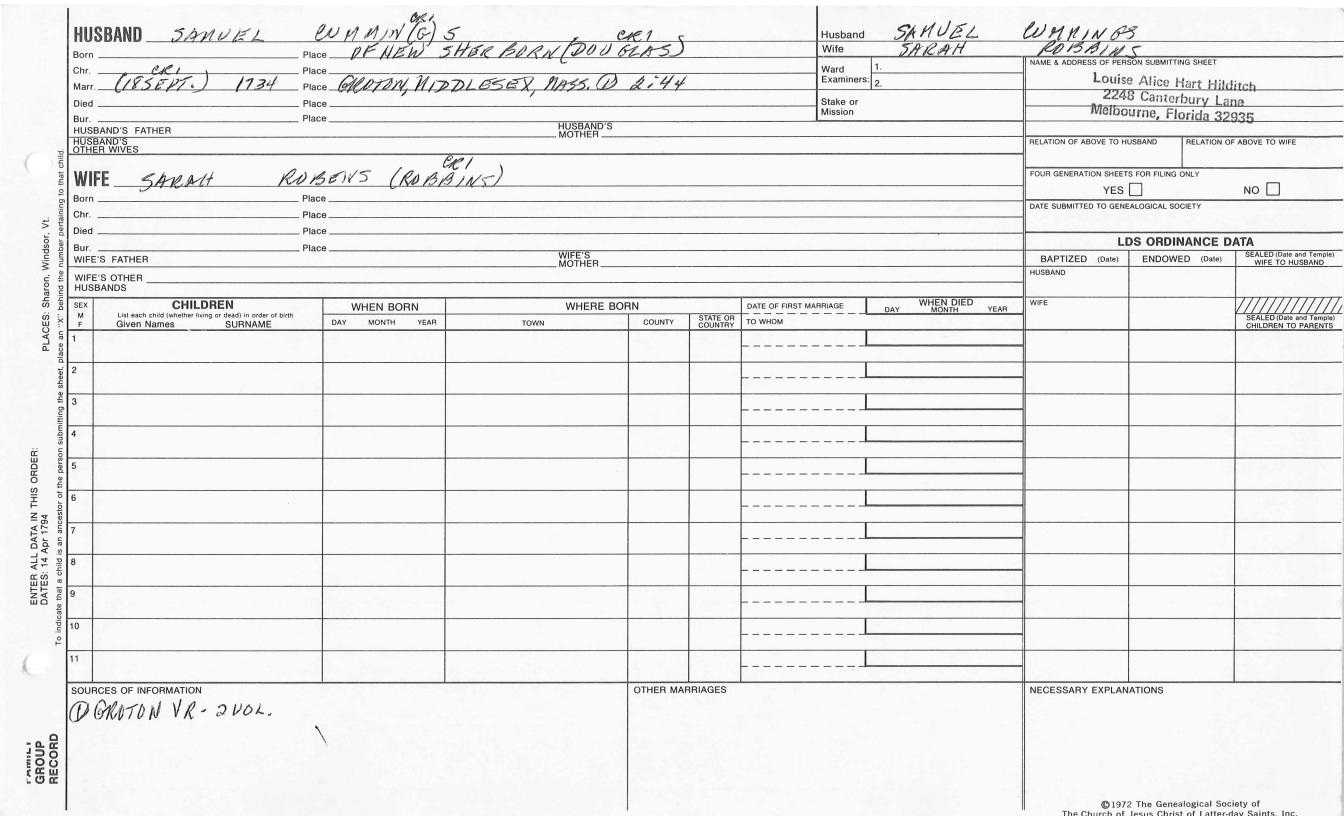 HUSBAND SAMUEL CUMMIN(G)S CR1
Born Place OF NEW SHERBORN (DOUGLAS) CR1
Chr. Place
Marr. (18 SEPT.) CR1 1734 Place GROTON, MIDDLESEX, MASS. ① 2:44
Died Place
Bur. Place
HUSBAND'S FATHER HUSBAND'S MOTHER
HUSBAND'S OTHER WIVES
WIFE SARAH ROBENS (ROBBINS) CR1
Born Place
Chr. Place
Died Place
Bur. Place
WIFE'S FATHER WIFE'S MOTHER
WIFE'S OTHER HUSBANDS
Husband SAMUEL CUMMINGS
Wife SARAH ROBBINS
Ward Examiners: 1.
2.
Stake or Mission
NAME & ADDRESS OF PERSON SUBMITTING SHEET
Louise Alice Hart Hilditch
2248 Canterbury Lane
Melbourne, Florida 32935
RELATION OF ABOVE TO HUSBAND RELATION OF ABOVE TO WIFE
FOUR GENERATION SHEETS FOR FILING ONLY
YES NO
DATE SUBMITTED TO GENEALOGICAL SOCIETY
LDS ORDINANCE DATA
BAPTIZED (Date) ENDOWED (Date) SEALED (Date and Temple) WIFE TO HUSBAND
HUSBAND
WIFE
SEALED (Date and Temple) CHILDREN TO PARENTS
SEX M F
CHILDREN
List each child (whether living or dead) in order of birth
Given Names SURNAME
WHEN BORN
DAY MONTH YEAR
WHERE BORN
TOWN COUNTY STATE OR COUNTRY
DATE OF FIRST MARRIAGE
TO WHOM
WHEN DIED
DAY MONTH YEAR
1
2
3
4
5
6
7
8
9
10
11
SOURCES OF INFORMATION
① GROTON VR - 2 VOL.
OTHER MARRIAGES
NECESSARY EXPLANATIONS
©1972 The Genealogical Society of
The Church of Jesus Christ of Latter-day Saints, Inc.
ENTER ALL DATA IN THIS ORDER:
DATES: 14 Apr 1794 PLACES: Sharon, Windsor, Vt.
To indicate that a child is an ancestor of the person submitting the sheet, place an "X" behind the number pertaining to that child
FAMILY
GROUP
RECORD